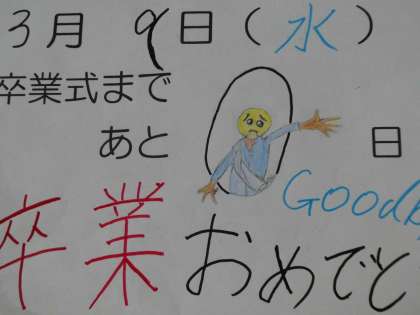 3月9日(水)
卒業式まで
あと0日
Goodb
卒業おめでと